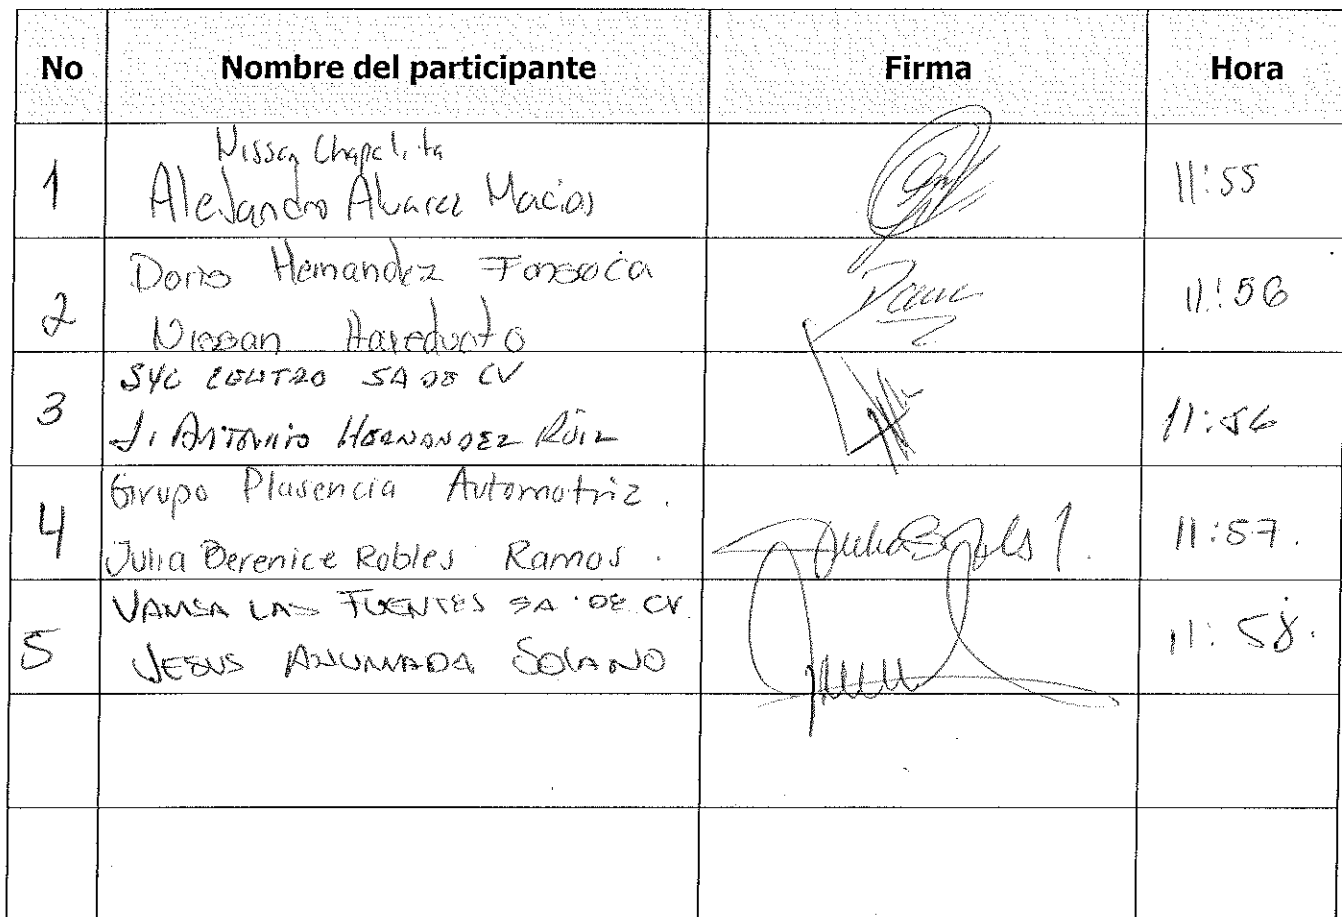 No Nombre del participante Firma Hora
1 Nissan Chapalita
Alejandro Alvarez Macias 11:55
2 Doris Hernandez Fonseca 11:56
Nissan
3 SYC CENTRO SA DE CV
J. ANTONIO HERNANDEZ RUIZ 11:56
4 Grupo Plasencia Automotriz.
Julia Berenice Robles Ramos. 11:57.
5 VAMSA LAS FUENTES SA DE CV
JESUS AHUMADA SOLANO 11:58.